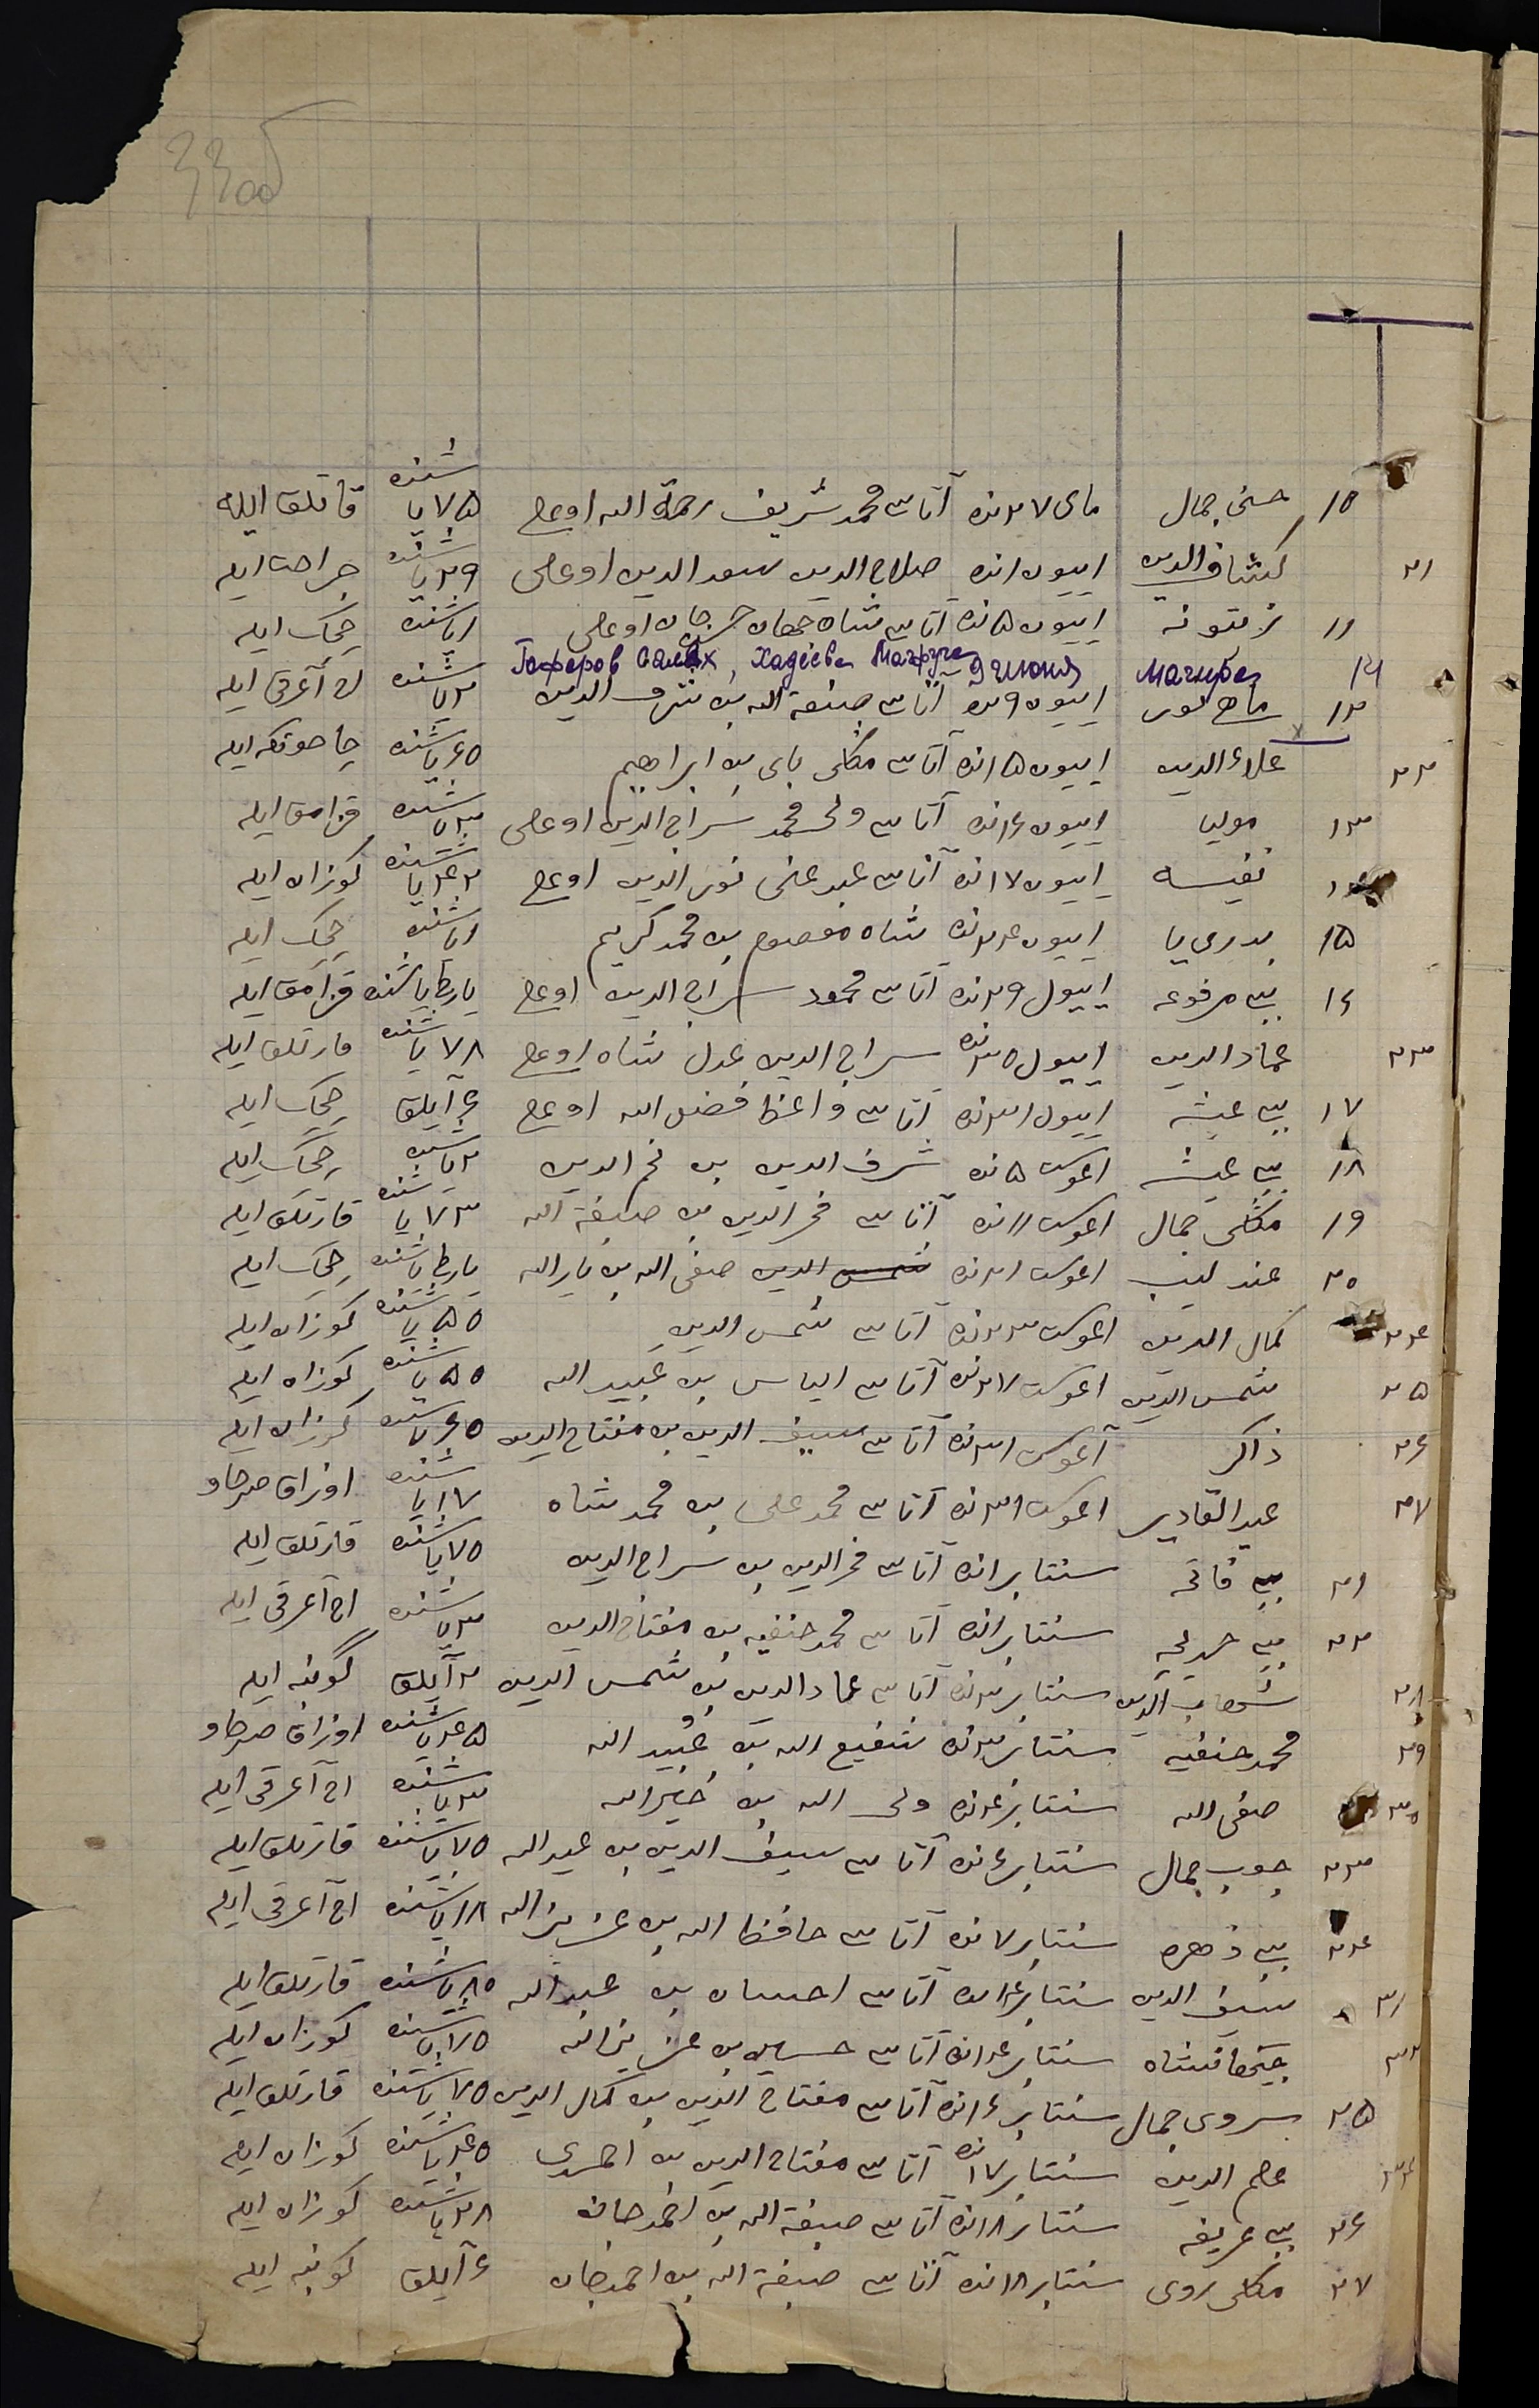 33 об
١٠ حسنی جمال مای ٢٧ نده آتاسی محمد شریف رحمة الله اوغلی ٧٥ یاشنده قاتلق ایله
٢١ کشاف الدین اییون ١نده صلاح الدین سعد الدین اوغلی ٣٩ یاشنده جراحت ایله
١١ زیتونه اییون ٥ نده آتاسی شاه جهان اوغلی ١ یاشنده چچک ایله
١٢ Магира 9 июня Гафаров Салах, Хадеева Магруй
١٢ ماح نور اییون ٩ نده آتاسی صبغة الله بن شرف الدین ٢ یاشنده اچ آغرقی ایله
٢٢ علاء الدین اییون ١٥نده آتاسی منکلی بای بن ابراهیم ٦٠ یاشنده چاحوتکه ایله
١٣ اییون ١٦نده آتاسی ولی محمد سراج الدین اوغلی ٣ یاشنده قزامق ایله
نفیسه اییون ١٧نده آتاسی عبد غنی نور الدین اوغلی ٤٢ یاشنده کوزان ایله
١٥ اییون ٢٤نده شاه معصوم بن محمد کریم ١ یاشنده چچک ایله
١٦ بیبی مرفوعه اییول ٢٩نده آتاسی محمود سراج الدین اوغلی یارطی یاشنده قزامق ایله
٢٣ عماد الدین اییول ٣٠نده سراج الدین عدل شاه اوغلی ٧٨ یاشنده قارتلق ایله
١٧ بیبی عیشه اییول ٣١نده آتاسی واعظ فضل الله اوغلی ٦ آیلق چچک ایله
١٨ بیبی عیشه اغوست ٥نده شرف الدین بن نجم الدین ٢ یاشنده چچک ایله
١٩ منکلی جمال اغوست ١١نده آتاسی فخر الدین بن صبغة الله ٧٣ یاشنده قارتلق ایله
٢٠ عندلیب اغوست ٢١نده شمس الدین صفی الله بن یار الله یارطی یاشنده چچک ایله
٢٤ کمال الدین اغوست ٢٣نده آتاسی شمس الدین ٥٥ یاشنده کوزان ایله
٢٥ شمس الدین اغوست ٢٧نده آتاسی الیاس بن عبید الله ٥٥ یاشنده کوزان ایله
٢٦ ذاکر آغوست ٣١نده آتاسی سیف الدین بن مفتاح الدین ٦٠ یاشنده کوزان ایله
٢٧ عبد القادیر اغوست ٣١نده آتاسی محمد علی بن محمد شاه ١٧ یاشنده اوزاق صرخاو
٢١ بیبی فاتحه سنتابر ١نده آتاسی فخر الدین بن سراج الدین ٧٥ یاشنده قارتلق ایله
٢٢ بیبی خدیجه سنتابر ١نده آتاسی محمد حنفیه بن مفتاح الدین ٣ یاشنده اچ آغرقی ایله
٢٨ شهاب الدین سنتابر ٣نده آتاسی عماد الدین بن شمس الدین ٢ آیلق کوینه ایله
٢٩ محمد حنفیه سنتابر ٣نده شفیع الله بن عبید الله ٤٥ یاشنده اوزاق صرخاو
٣٠ صفی الله سنتابر ٤نده ولی الله بن خیر الله ٣ یاشنده اچ آغرقی ایله
٢٣ حبوب جمال سنتابر ٦نده آتاسی سیف الدین بن عبد الله ٧٥ یاشنده قارتلق ایله
٢٤ بیبی زهره سنتابر ٧نده آتاسی حافظ الله بن عزیز الله ١٨ یاشنده اچ آغرقی ایله
٣١ سیف الدین سنتابر ١٤نده آتاسی احسان بن عبد الله ٨٠ یاشنده قارتلق ایله
٣٢ جیهانشاه سنتابر ١٤نده آتاسی حسین بن عزیز الله ٧٥ یاشنده کوزان ایله
٢٥ سروی جمال سنتابر ١٦نده آتاسی مفتاح الدین بن کمال الدین ٧٥ یاشنده قارتلق ایله
٣٣ علم الدین سنتابر ١٧نده آتاسی مفتاح الدین بن احمدی ٤٥ یاشنده کوزان ایله
٢٦ بیبی عریفه سنتابر ١٨نده آتاسی صبغة الله بن احمد جان ٢٨ یاشنده کوزان ایله
٢٧ منکلی روی سنتابر ١٨نده آتاسی صبغة الله بن احمد جان ٦ آیلق کوینه ایله